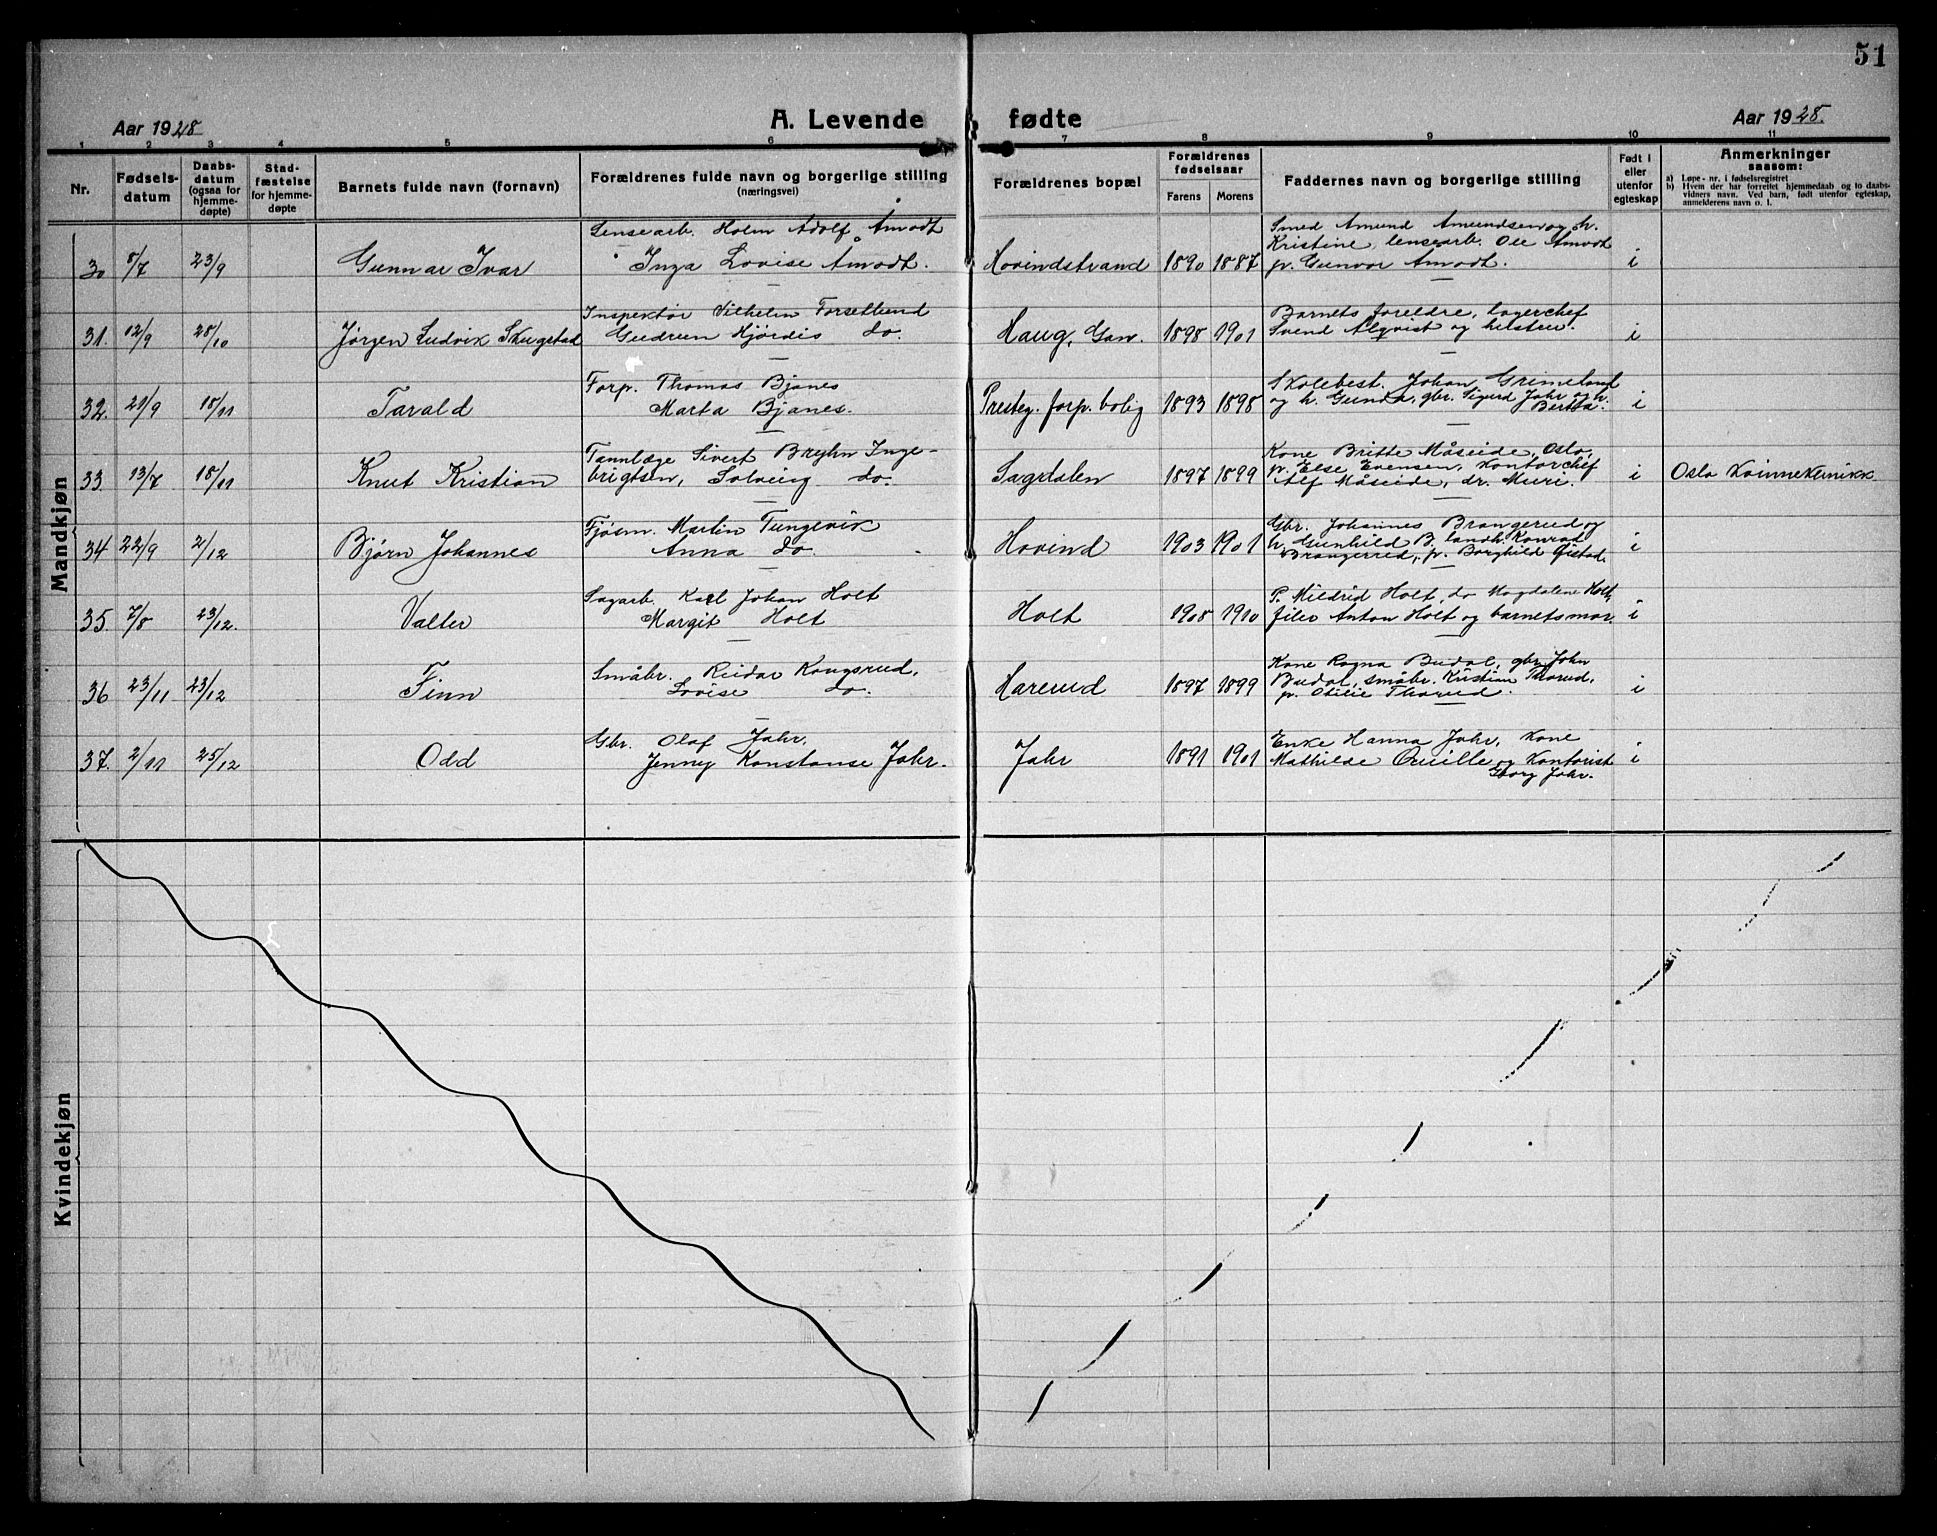 51
Aar 1928
A. Levende fødte
Aar 1928.
1 2 3 4 5 6 7 8 9 10 11
Nr.
Fødsels-
datum
Daabs-
datum
(ogsaa for
hjemme-
døpte)
Stad-
fæstelse
for hjemme-
døpte
Barnets fulde navn (fornavn)
Forældrenes fulde navn og borgerlige stilling
(næringsvei)
Forældrenes bopæl
Forældrenes
fødselsaar
Farens Morens
Faddernes navn og borgerlige stilling
Født i
eller
utenfor
egteskap
Anmerkninger
saasom:
a) Løpe-nr. i fødselsregistret
b) Hvem der har forrettet hjemmedaab og to daabs-
vidners navn. Ved barn, født utenfor egteskap,
anmelderens navn o. l.
Mandkjøn
30 8/7 23/9 Gunnar Ivar
Lensearb. Holm Adolf Amodt
Inga Lovise Amodt.
Hovindstrand 1890 1887
Smed Amund Amundsen og h.
Kristine, lensearb. Ole Amodt
p. Gunvor Amodt.
i
31. 12/9 28/10 Jørgen Ludvik Skugstad
Inspektør Vilhelm Forsetlund
Gudrun Hjørdis do.
Haug, Gan. 1898 1901
Barnets foreldre, lagerchef
Svend Alqvist og hustru.
i
32. 21/9 18/11 Tarald
Forp. Thomas Bjanes
Marta Bjanes.
Presteg. forp. bolig 1893 1898
Skolebest. Johan Grimeland
og h. Gunda, gbr. Sigurd Jahr og h.
Bertha.
i
33. 13/7 18/11 Knut Kristian
Tannlæge Sivert Bryhn Inge-
brigtsen, Solveig do.
Sagdalen 1897 1899
Kone Britte Måseide, Oslo,
p. Else Evensen, kontorchef
Alf Måseide, dr. Muri.
i
Oslo Kvinneklinikk.
34 22/9 2/12 Bjørn Johannes
Fjøsm. Martin Tungevik
Anna do.
Hovind 1903 1901
Gbr. Johannes Brangerud og
h. Gunhild B. landh. Konrad
Brangerud, p. Borghild Øistad.
i
35. 7/8 23/12. Valter
Sagarb. Karl Johan Holt
Margit Holt
Holt 1908 1910
P. Mildrid Holt, do Magdalene Holt,
filer Anton Holt og barnets mor.
i
36 23/11 23/12 Finn
Småbr. Reidar Kongsrud,
Lovise do.
Harerud 1897 1899
Kone Ragna Budal, gbr. John
Budal, småbr. Kristian Thorud,
p. Otilie Thorud.
i
37. 2/11 25/12 Odd
Gbr. Olaf Jahr.
Jenny Konstanse Jahr.
Jahr 1891 1901
Enke Hanna Jahr, kone
Mathilde og kontorist
Georg Jahr.
i
Kvindekjøn